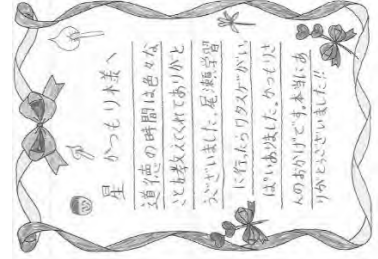 星 かつもり様へ
道徳の時間は色々な
ことを教えてくれてありがと
うございました。尾瀬学習
に行ったらワタスゲがい
ぱいありました。かつもりさ
んのおかげです。本当にあ
りがとうございました!!